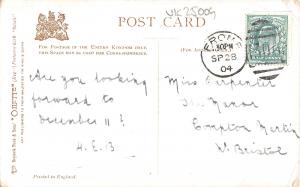 VK25009
POST CARD
FOR POSTAGE IN THE UNITED KINGDOM ONLY,
THIS SPACE MAY BE USED FOR CORRESPONDENCE.
FROME
SP 28
04
Are you looking
forward to
December 11!
4.E.3
Miss Carpenter
The Manor
Compton Martin
Nr Bristol
Raphael Tuck & Sons' "OILETTE"
Printed in England.